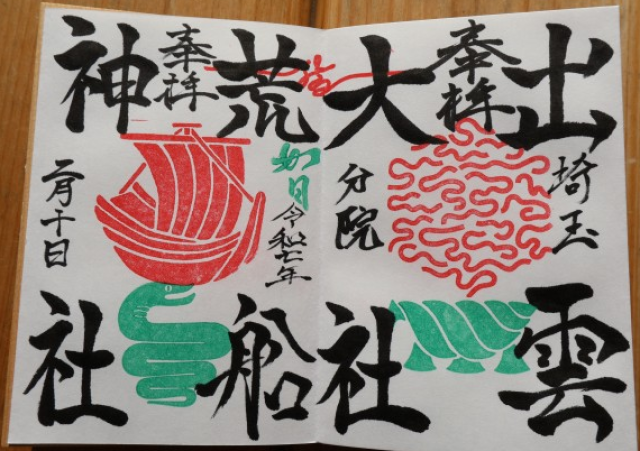 奉拝
出雲
大社
埼玉
分院
奉拝
荒船
神社
如月
令和七年
二月十日